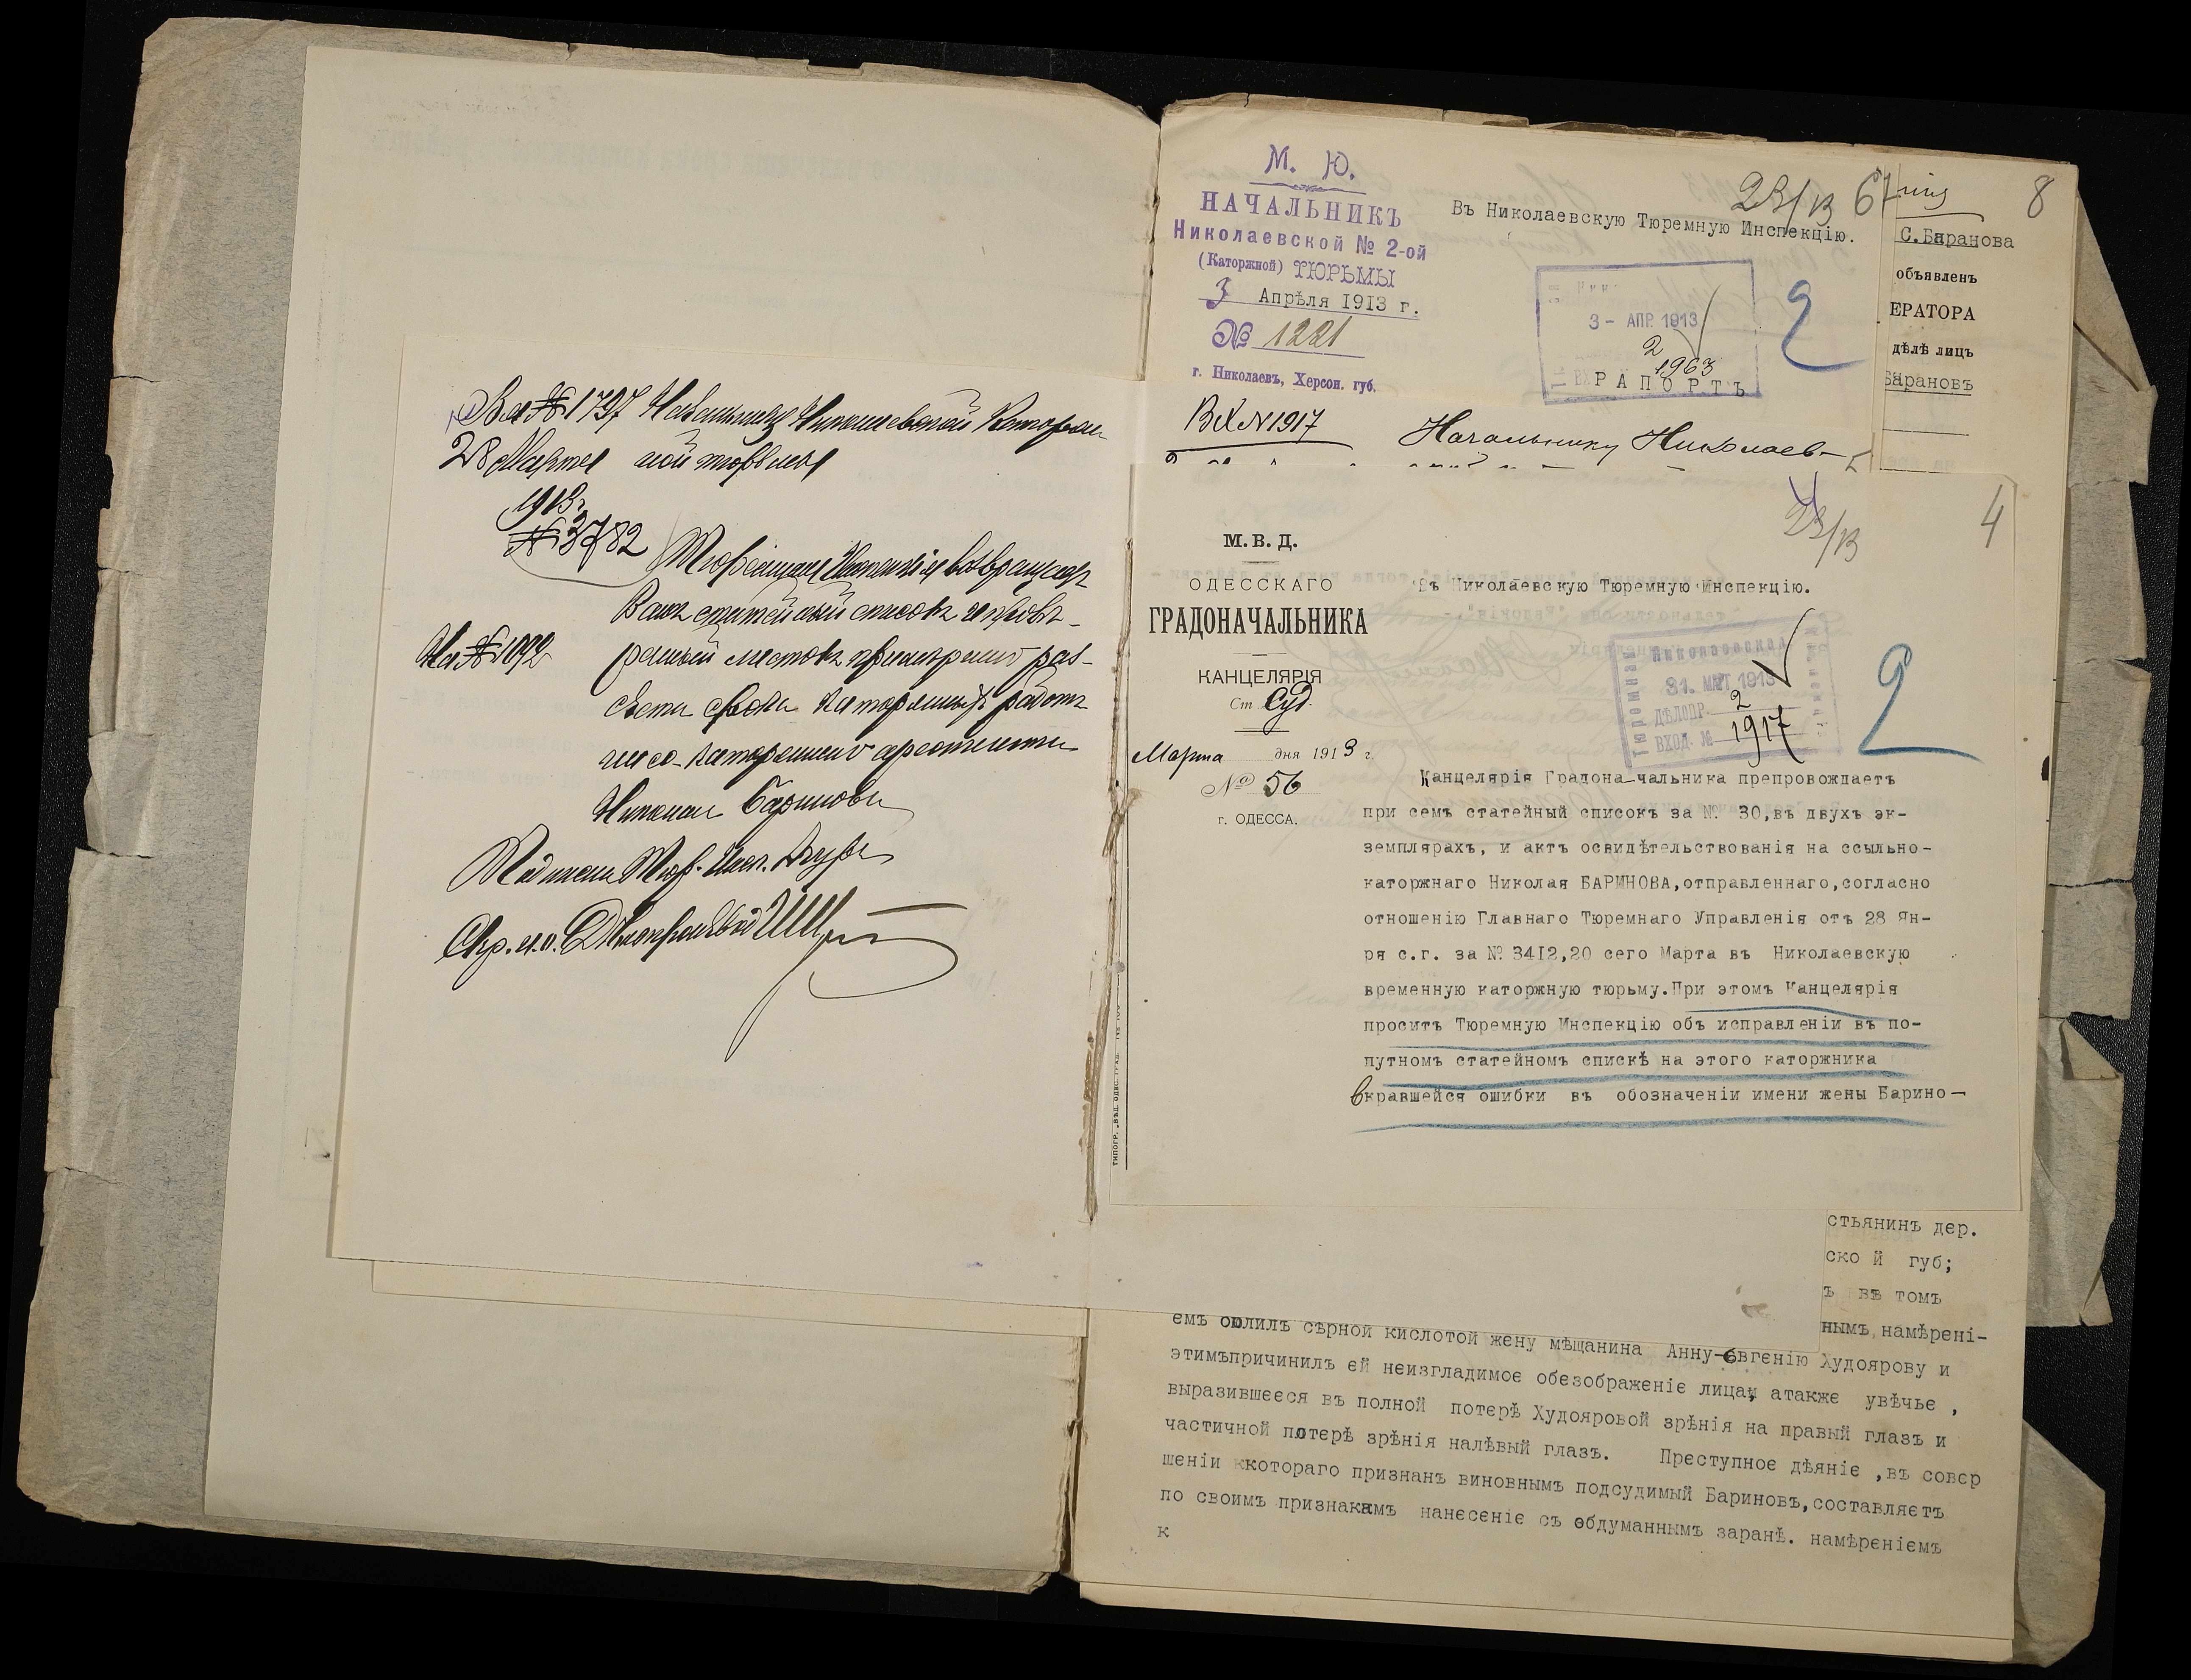 Вх № 1797 Начальнику Николаевской Каторж-
28 Марта ной тюрьмы
1913 г.
№ 3782
Тюремная Инспекція возвращает
Вамъ статейный списокъ и
На № 1092
срока каторжныхъ работъ
каторжнаго арестанта
Николая Баринова
Подписал Тюр. Инсп.
М. Ю.
НАЧАЛЬНИКЪ
Николаевской № 2-ой
(Каторжной) ТЮРЬМЫ
3 Апрѣля 1913 г.
№ 1221
г. Николаевъ, Херсон. губ.
23/13 6
Въ Николаевскую Тюремную Инспекцію.
3 - АПР 1913
2
1963
РАПОРТЪ
2
8
С.Баранова
объявленъ
ЕРАТОРА
дѣлѣ лицъ
Барановъ
ВХ N 1917
Начальнику Николаев-
23/13
4
М. В. Д.
ОДЕССКАГО
ГРАДОНАЧАЛЬНИКА
КАНЦЕЛЯРІЯ
Ст Суд.
Марта дня 1913 г.
№ 56
г. ОДЕССА.
Въ Николаевскую Тюремную Инспекцію.
Николаевская
Тюремная
31. МАРТ 1913
ДѢЛОПР. 2
ВХОД. № 1917
2
Канцелярія Градона-чальника препровождаетъ
при семъ статейный списокъ за № 30,въ двухъ эк-
земплярахъ, и актъ освидѣтельствованія на ссыльно-
каторжнаго Николая БАРИНОВА,отправленнаго,согласно
отношенію Главнаго Тюремнаго Управленія отъ 28 Ян-
ря с.г. за № 3412,20 сего Марта въ Николаевскую
временную каторжную тюрьму.При этомъ Канцелярія
проситъ Тюремную Инспекцію объ исправленіи въ по-
путномъ статейномъ спискѣ на этого каторжника
вкравшейся ошибки въ обозначеніи имени жены Барино-
стьянинъ дер.
ско й губ;
ъ въ томъ
нымъ намѣрені-
емъ облилъ сѣрной кислотой жену мѣщанина Анну-Евгенію Худоярову и
этимъпричинилъ ей неизгладимое обезображеніе лица, атакже увѣчье ,
выразившееся въ полной потерѣ Худояровой зрѣнія на правый глазъ и
частичной потерѣ зрѣнія налѣвый глазъ. Преступное дѣяніе ,въ совер
шеніи котораго признанъ виновнымъ подсудимый Бариновъ,составляетъ
по своимъ признакамъ нанесеніе съ обдуманнымъ заранѣ. намѣреніемъ
к